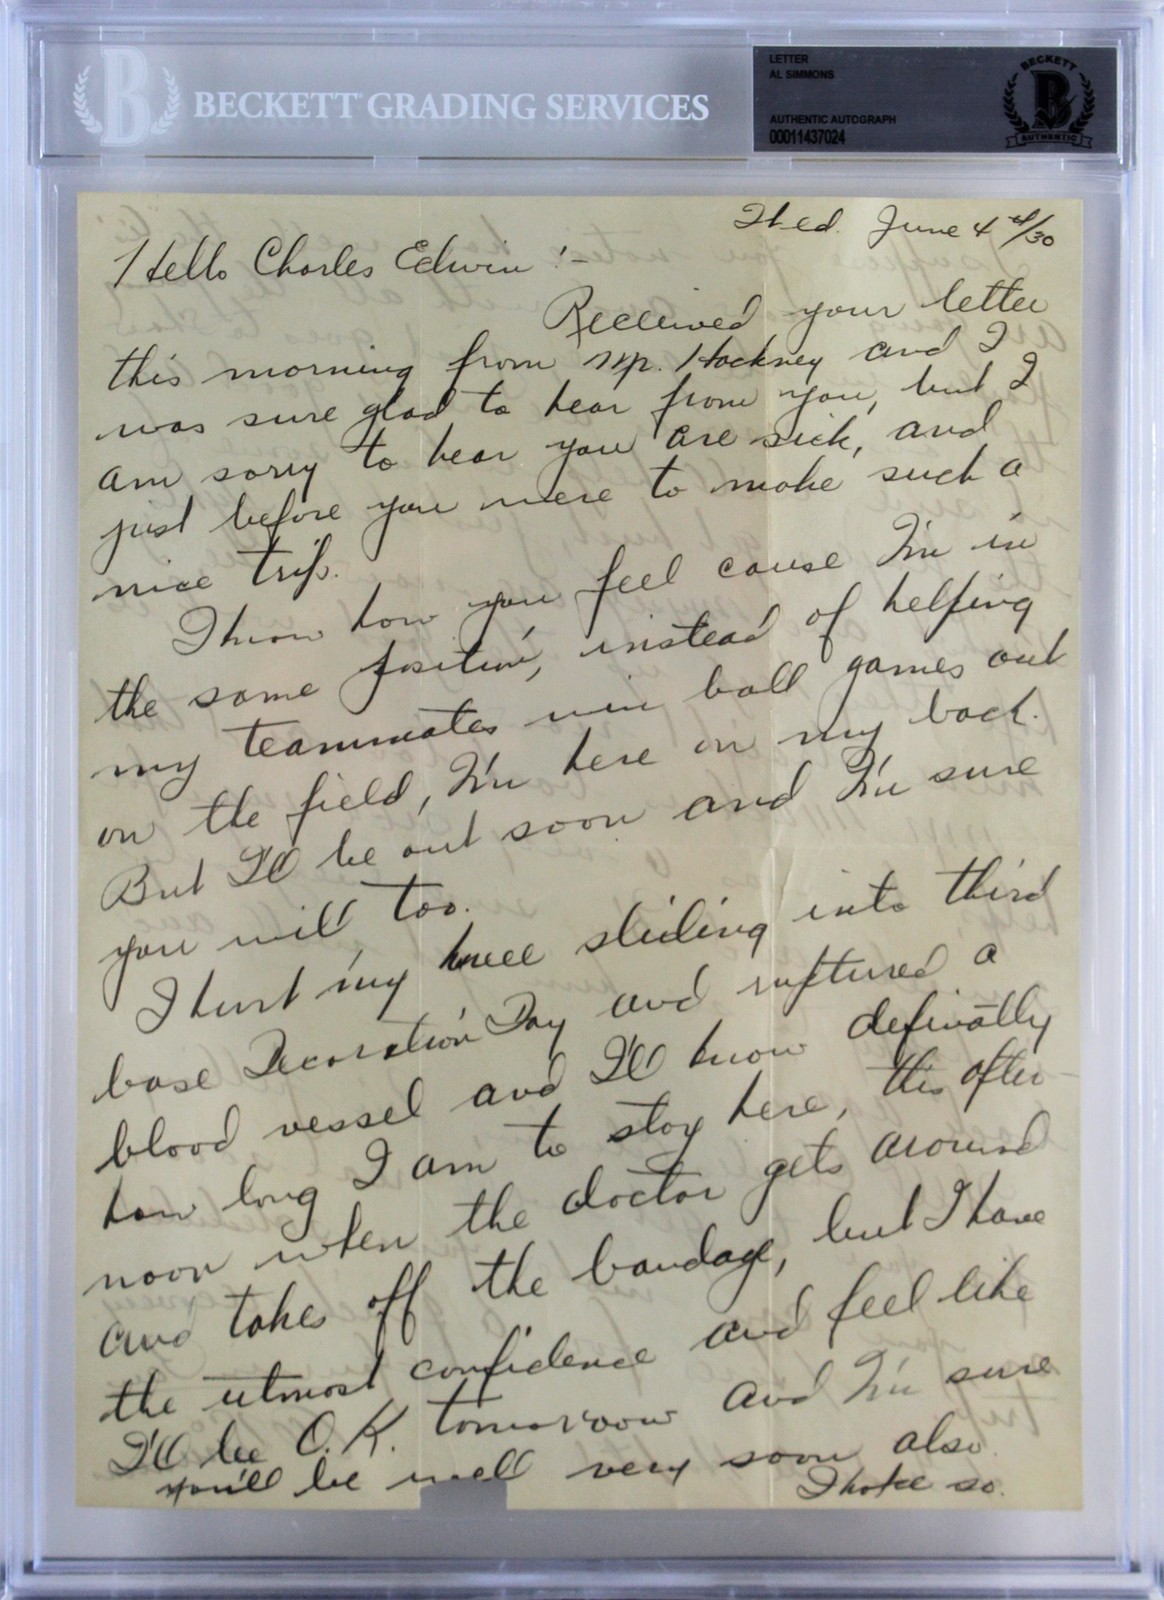 BECKETT GRADING SERVICES
LETTER
AL SIMMONS
AUTHENTIC AUTOGRAPH
00011437024
BECKETT
AUTHENTIC
Wed. June 4th/30
Hello Charles Edwin :-
Received your letter
this morning from Mr. Hockney and I
was sure glad to hear from you, but I
am sorry to hear you are sick, and
just before you were to make such a
nice trip.
I know how you feel cause I'm in
the same position, instead of helping
my teammates win ball games out
on the field, I'm here on my back.
But I'll be out soon and I'm sure
you will, too.
I hurt my knee sliding into third
base Decoration Day and ruptured a
blood vessel and I'll know definatly
how long I am to stay here, this after-
noon when the doctor gets around
and takes off the bandage, but I have
the utmost confidence and feel like
I'll be O.K. tomorrow and I'm sure
you'll be well very soon also.
I hope so.